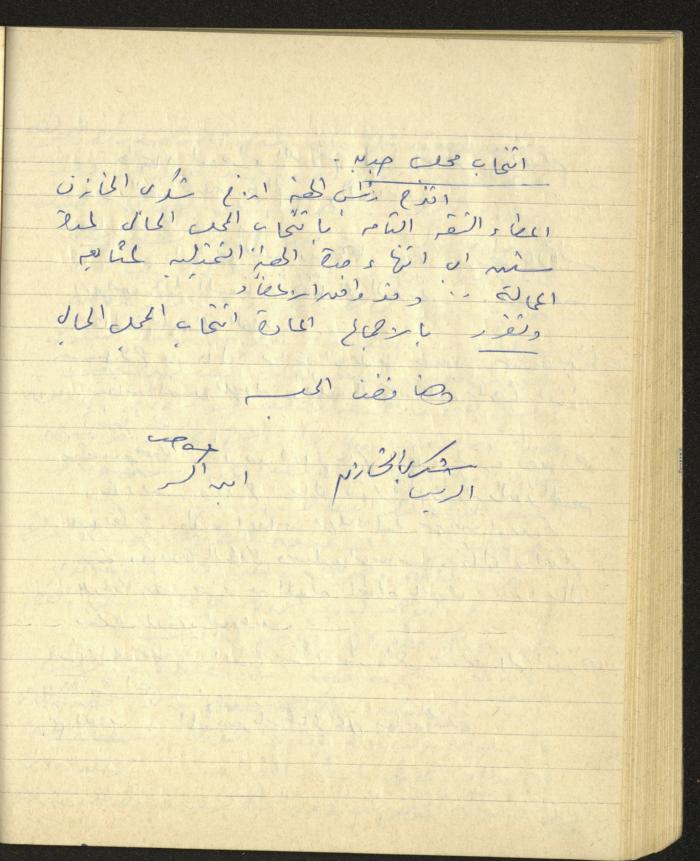 انتخاب مجلس جديد .
اقترح رئيس اللجنة الاخ شكري الخازن
اعطاء الثقه التامه بانتخاب المجلس الحالي لمدة
سنتين اي انتهاء مدة الهيئة التمثيليه لمتابعة
اعماله .. وقد وافق الاعضاء
وتقرر بالاجماع اعادة انتخاب المجلس الحالي
وهنا فضت الجلسه
شكري الخازن
الرئيس امين السر